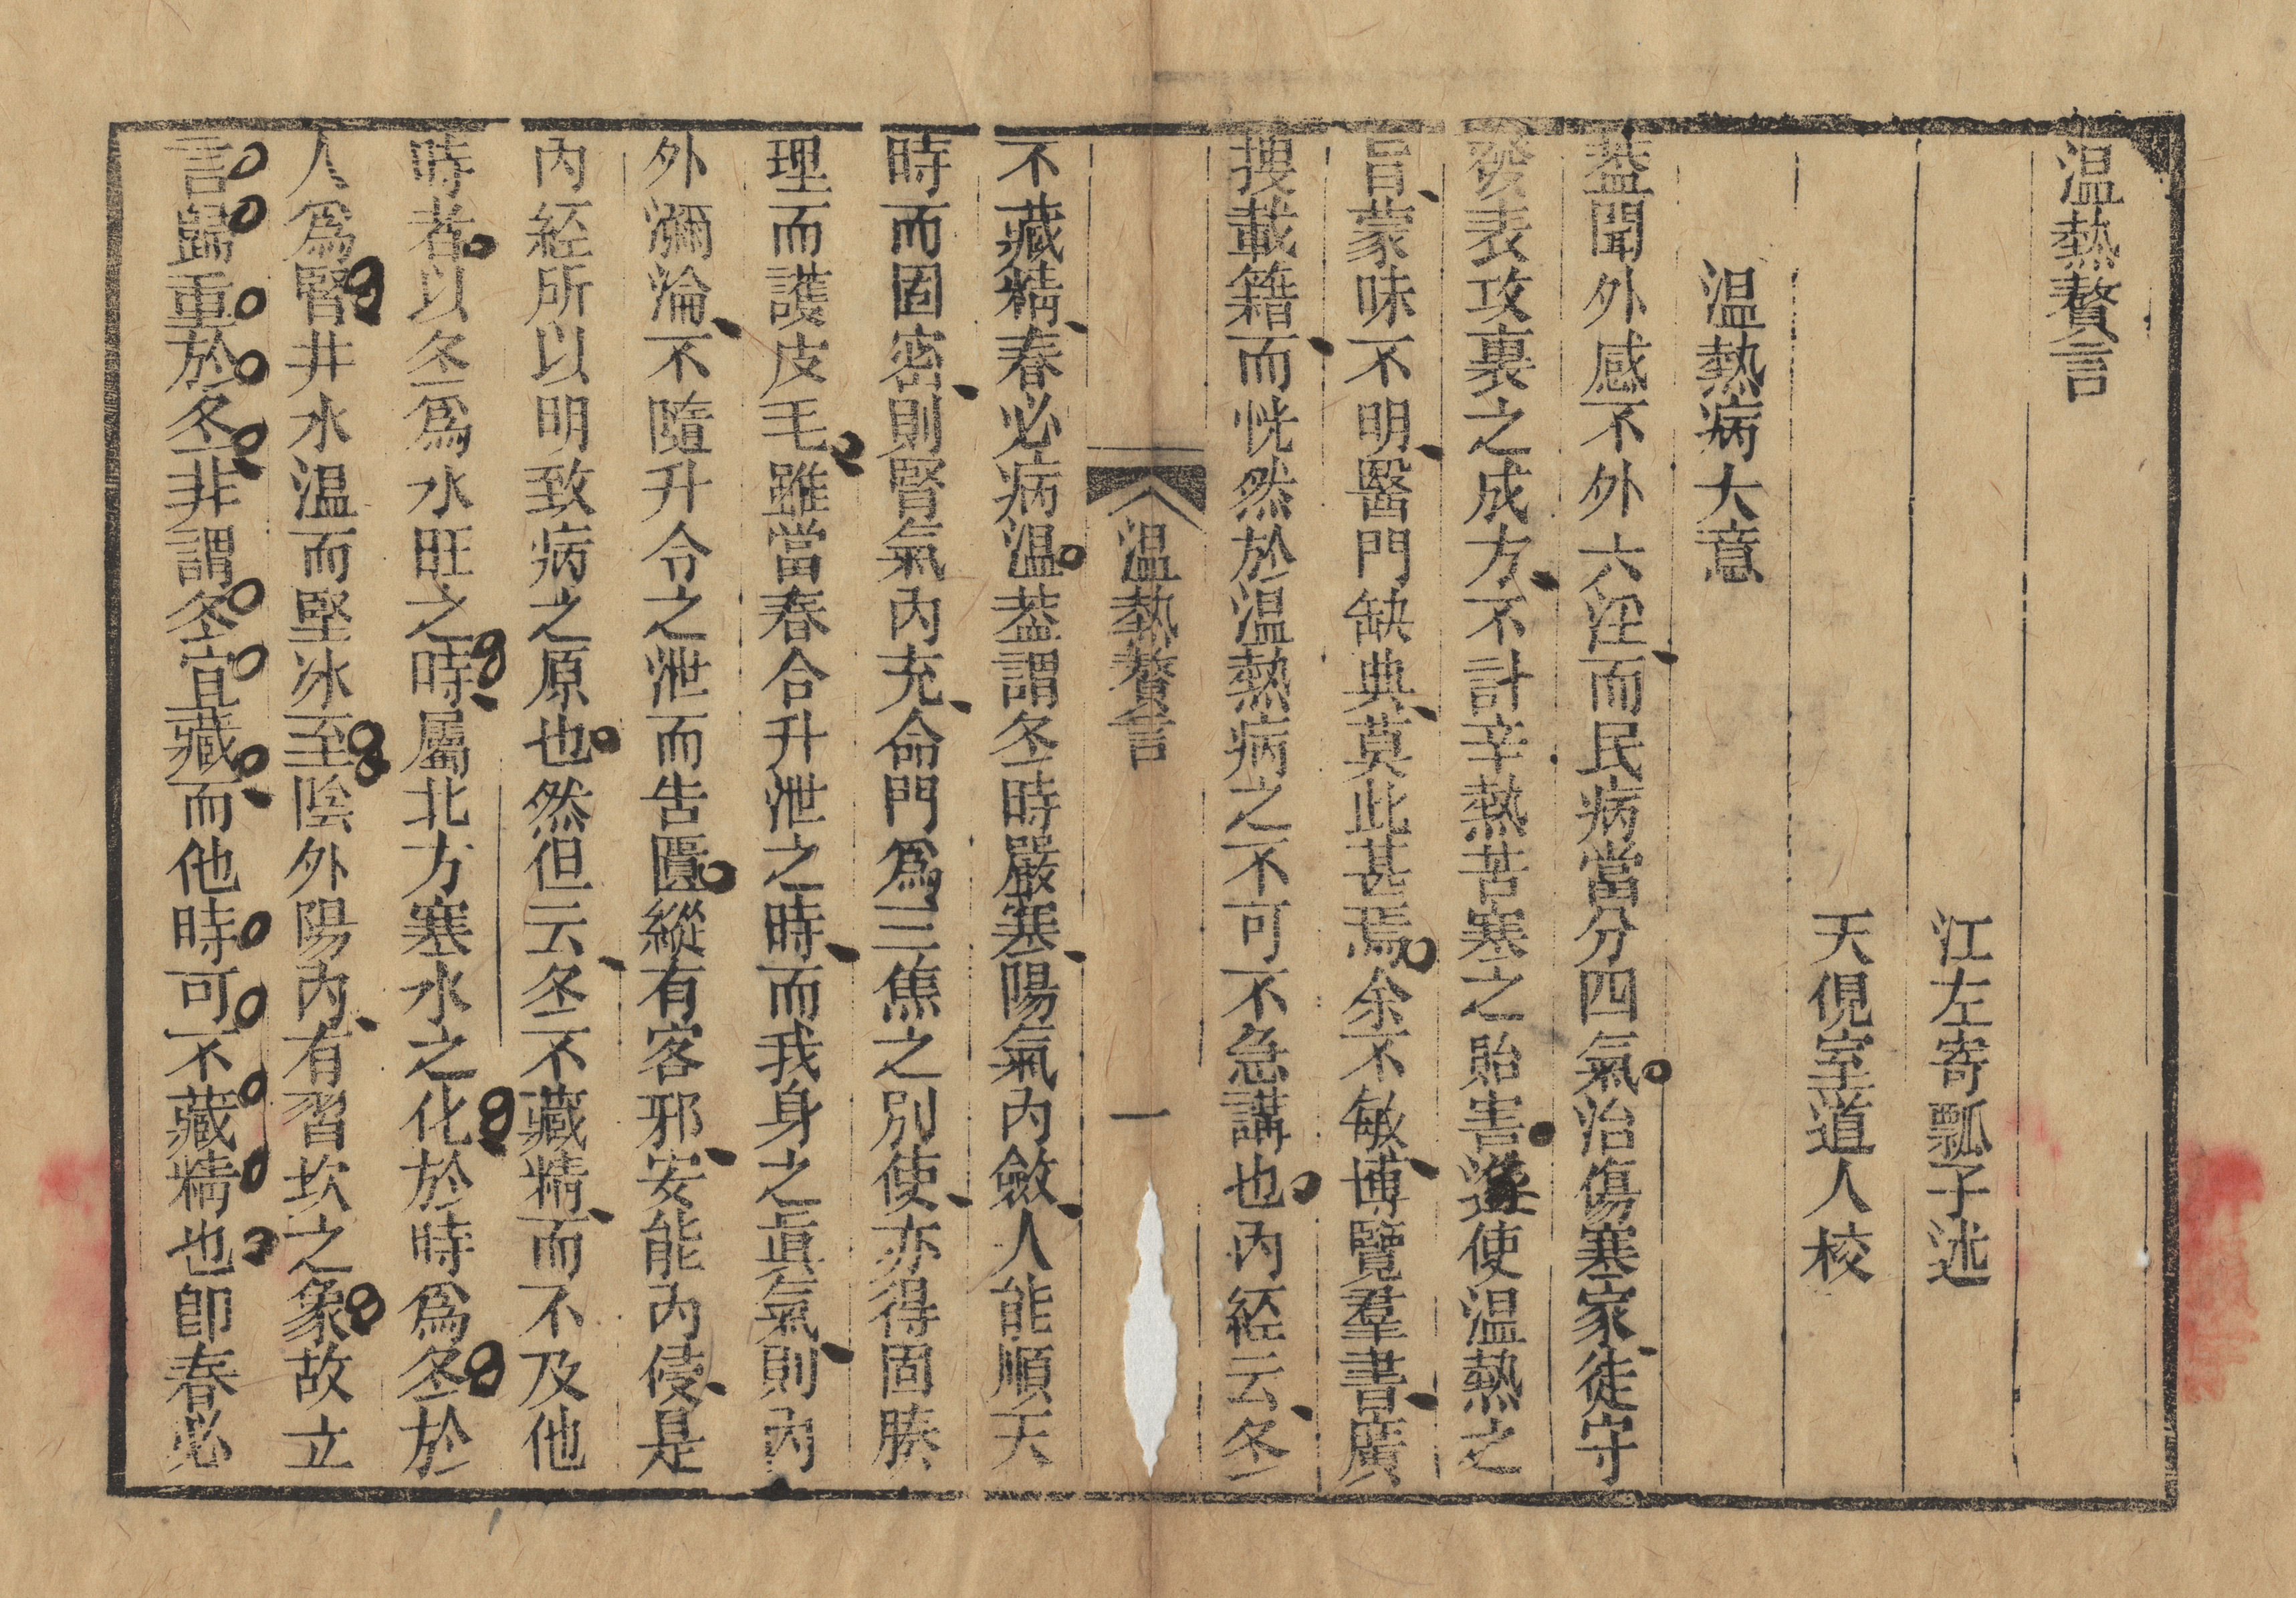 温熱贅言
江左寄瓢子述
天倪室道人校
温熱病大意
蓋聞外感不外六淫而民病當分四氣治傷寒家徒守
發表攻裏之成方不計辛熱苦寒之貽害遂使温熱之
旨蒙昧不明醫門缺典莫此甚焉余不敏博覽羣書廣
搜載籍而恍然於温熱病之不可不急講也內經云冬
温熱贅言
一
不藏精春必病温蓋謂冬時嚴寒陽氣內斂人能順天
時而固密則腎氣內充命門為三焦之別使亦得固腠
理而護皮毛雖當春合升泄之時而我身之眞氣則內
外瀰淪不隨升令之泄而告匱縱有客邪安能內侵是
內經所以明致病之原也然但云冬不藏精而不及他
時者以冬為水旺之時屬北方寒水之化於時為冬於
人為腎井水温而堅冰至陰外陽內有習坎之象故立
言歸重於冬非謂冬宜藏而他時可不藏精也卽春必